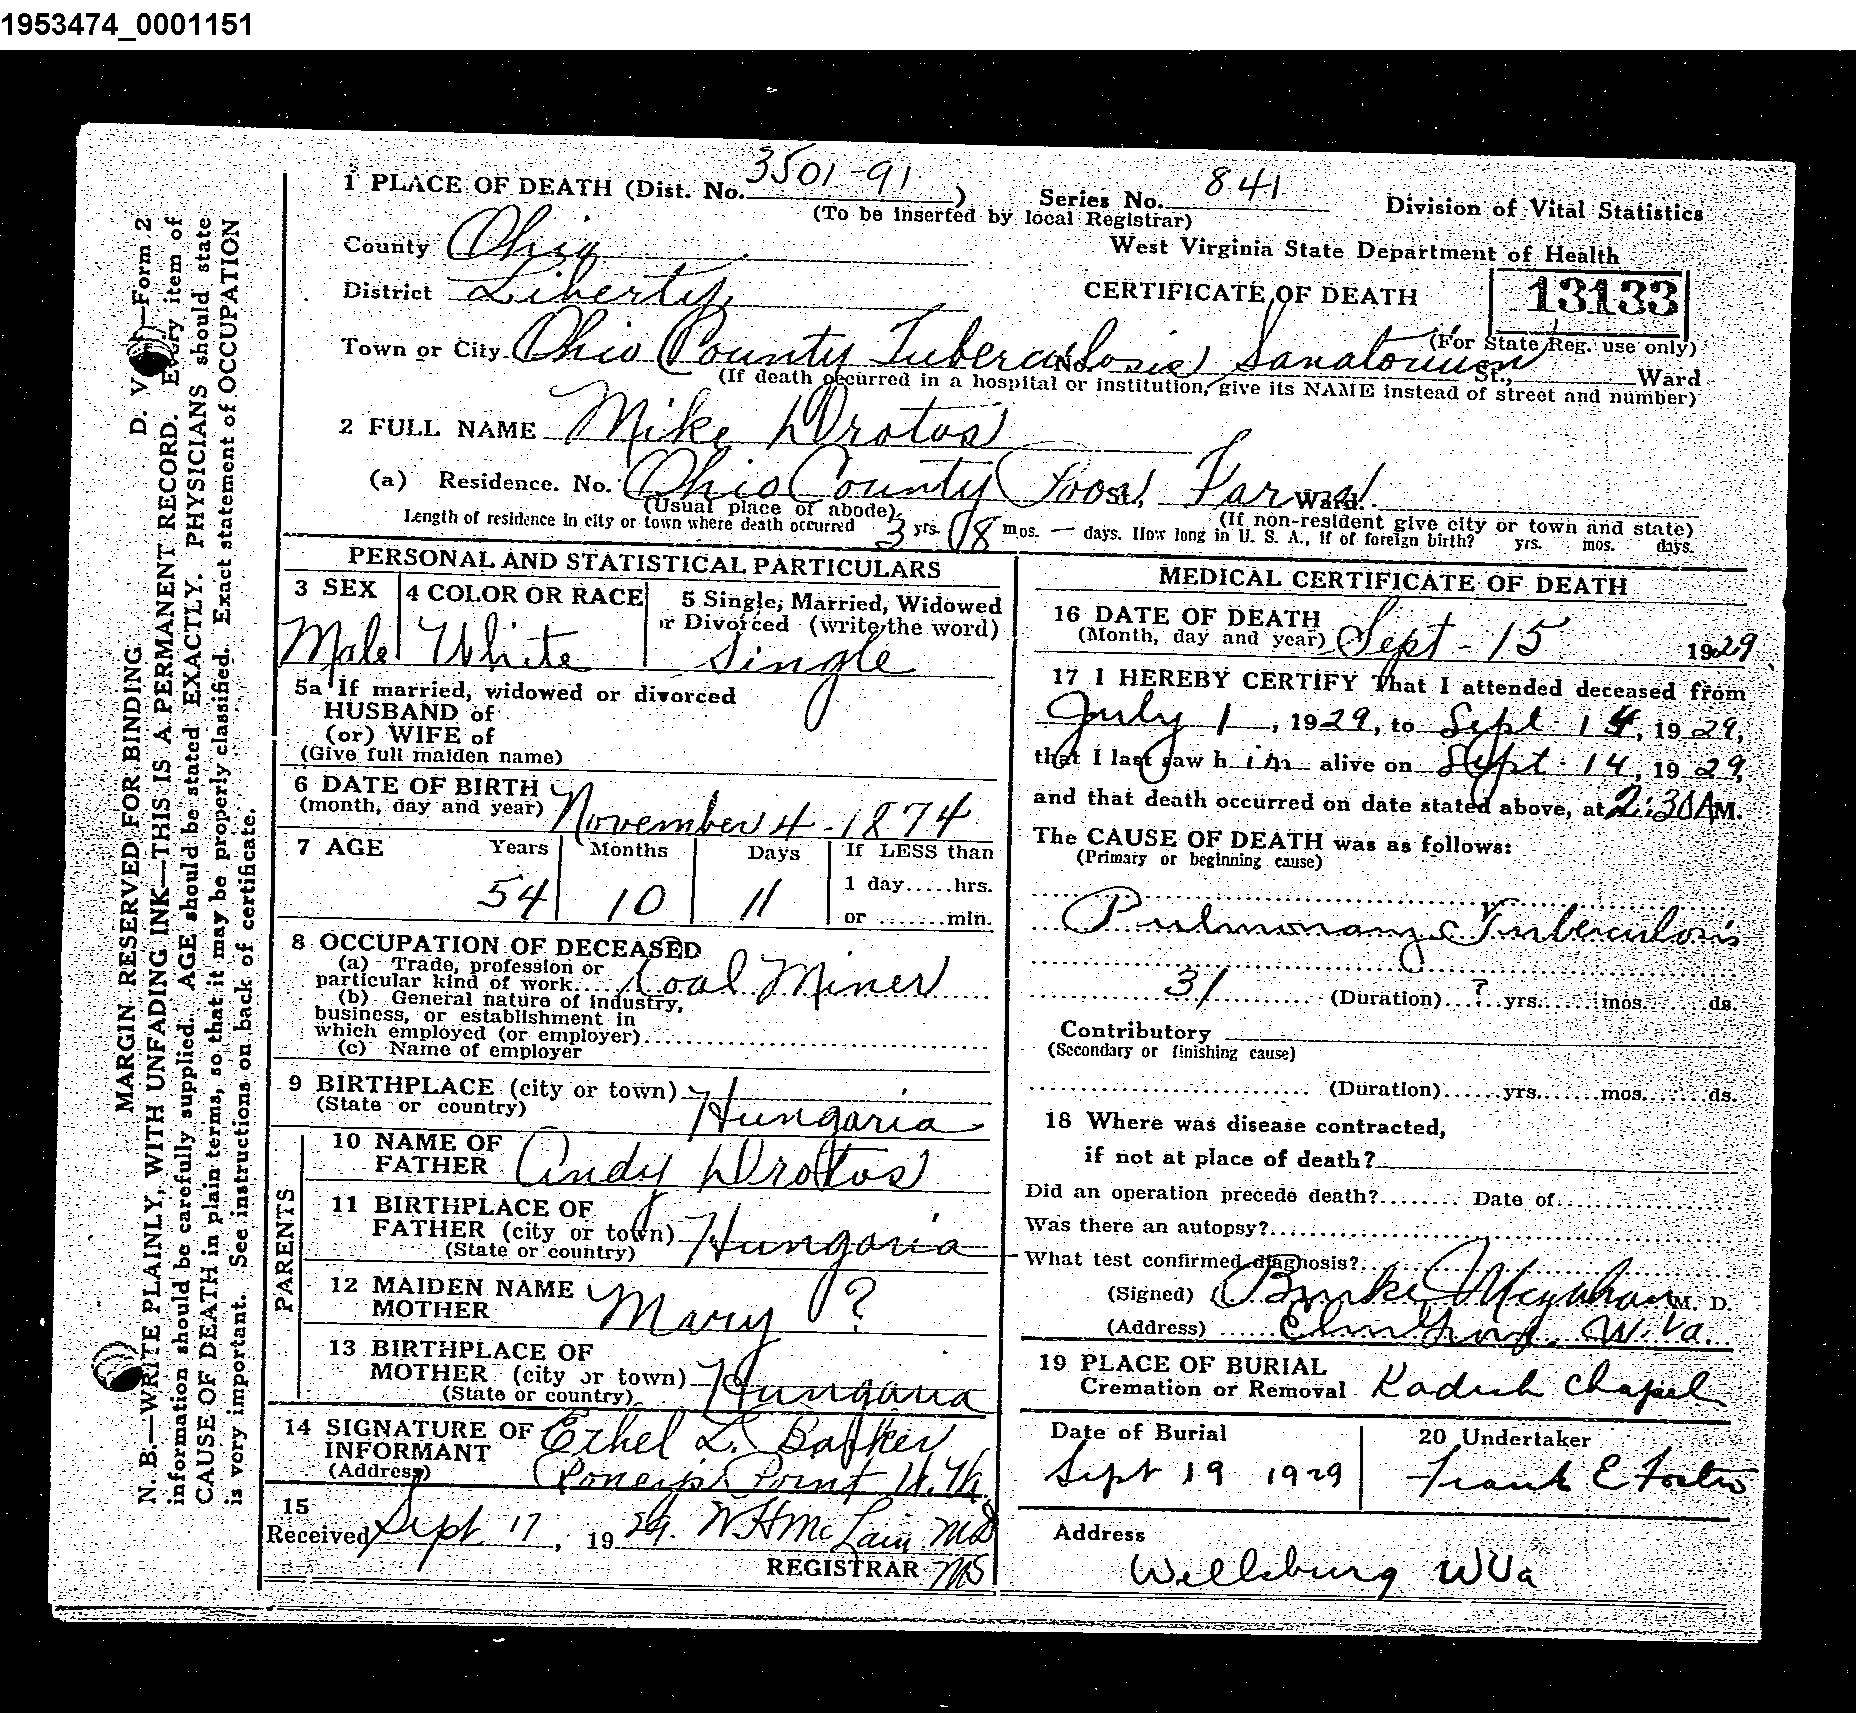 1953474_0001151
1 PLACE OF DEATH (Dist. No. 3501-91 ) Series No. 841 Division of Vital Statistics
(To be inserted by local Registrar)
County Ohio West Virginia State Department of Health
District Liberty CERTIFICATE OF DEATH 13133
Town or City Ohio County Tuberculosis Sanatorium (For State Reg. use only)
No. St., Ward
(If death occurred in a hospital or institution, give its NAME instead of street and number)
2 FULL NAME Mike Drotos
(a) Residence. No. Ohio County Poor Farm St. Ward.
(Usual place of abode) (If non-resident give city or town and state)
Length of residence in city or town where death occurred 3 yrs. 8 mos. — days. How long in U. S. A., if of foreign birth? yrs. mos. days.
PERSONAL AND STATISTICAL PARTICULARS
3 SEX 4 COLOR OR RACE 5 Single, Married, Widowed
or Divorced (write the word)
Male White Single
5a If married, widowed or divorced
HUSBAND of
(or) WIFE of
(Give full maiden name)
6 DATE OF BIRTH
(month, day and year) November 4 - 1874
7 AGE Years Months Days If LESS than
54 10 11 1 day.....hrs.
or .......min.
8 OCCUPATION OF DECEASED
(a) Trade, profession or
particular kind of work.... Coal Miner
(b) General nature of industry,
business, or establishment in
which employed (or employer)
(c) Name of employer
9 BIRTHPLACE (city or town)
(State or country) Hungaria
PARENTS
10 NAME OF
FATHER Andy Drotos
11 BIRTHPLACE OF
FATHER (city or town) Hungaria
(State or country)
12 MAIDEN NAME
MOTHER Mary ?
13 BIRTHPLACE OF
MOTHER (city or town) Hungaria
(State or country)
14 SIGNATURE OF
INFORMANT Ethel L. Barker
(Address) Point W. Va.
15
Received Sept 17, 1929. W H McLain MD
REGISTRAR MS
MEDICAL CERTIFICATE OF DEATH
16 DATE OF DEATH
(Month, day and year) Sept - 15 1929
17 I HEREBY CERTIFY That I attended deceased from
July 1, 1929, to Sept 14, 1929,
that I last saw h im alive on Sept - 14, 1929,
and that death occurred on date stated above, at 2:30 A M.
The CAUSE OF DEATH was as follows:
(Primary or beginning cause)
Pulmonary Tuberculosis
31 (Duration) ? yrs. mos. ds.
Contributory
(Secondary or finishing cause)
(Duration) yrs. mos. ds.
18 Where was disease contracted,
if not at place of death?
Did an operation precede death? Date of
Was there an autopsy?
What test confirmed diagnosis?
(Signed) M. D.
(Address) Elm Grove, W. Va.
19 PLACE OF BURIAL
Cremation or Removal Kadesh Chapel
Date of Burial
Sept 19 1929
20 Undertaker
Frank E Foster
Address
Wellsburg WVa
MARGIN RESERVED FOR BINDING D. V. —Form 2
N. B.—WRITE PLAINLY, WITH UNFADING INK—THIS IS A PERMANENT RECORD. Every item of
information should be carefully supplied. AGE should be stated EXACTLY. PHYSICIANS should state
CAUSE OF DEATH in plain terms, so that it may be properly classified. Exact statement of OCCUPATION
is very important. See instructions on back of certificate.